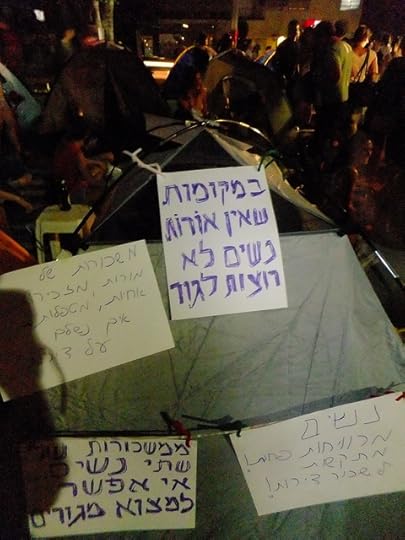 במקומות
שאין אורות
נשים לא
רוצות לגור
משכורות של
מורות, מזכירות
אחיות, מטפלות
איך נשלם
על
ממשכורות של
שתי נשים
אי אפשר
למצוא מגורים
נשים
מרוויחות פחות!
מתקשות
לשכור דירות!